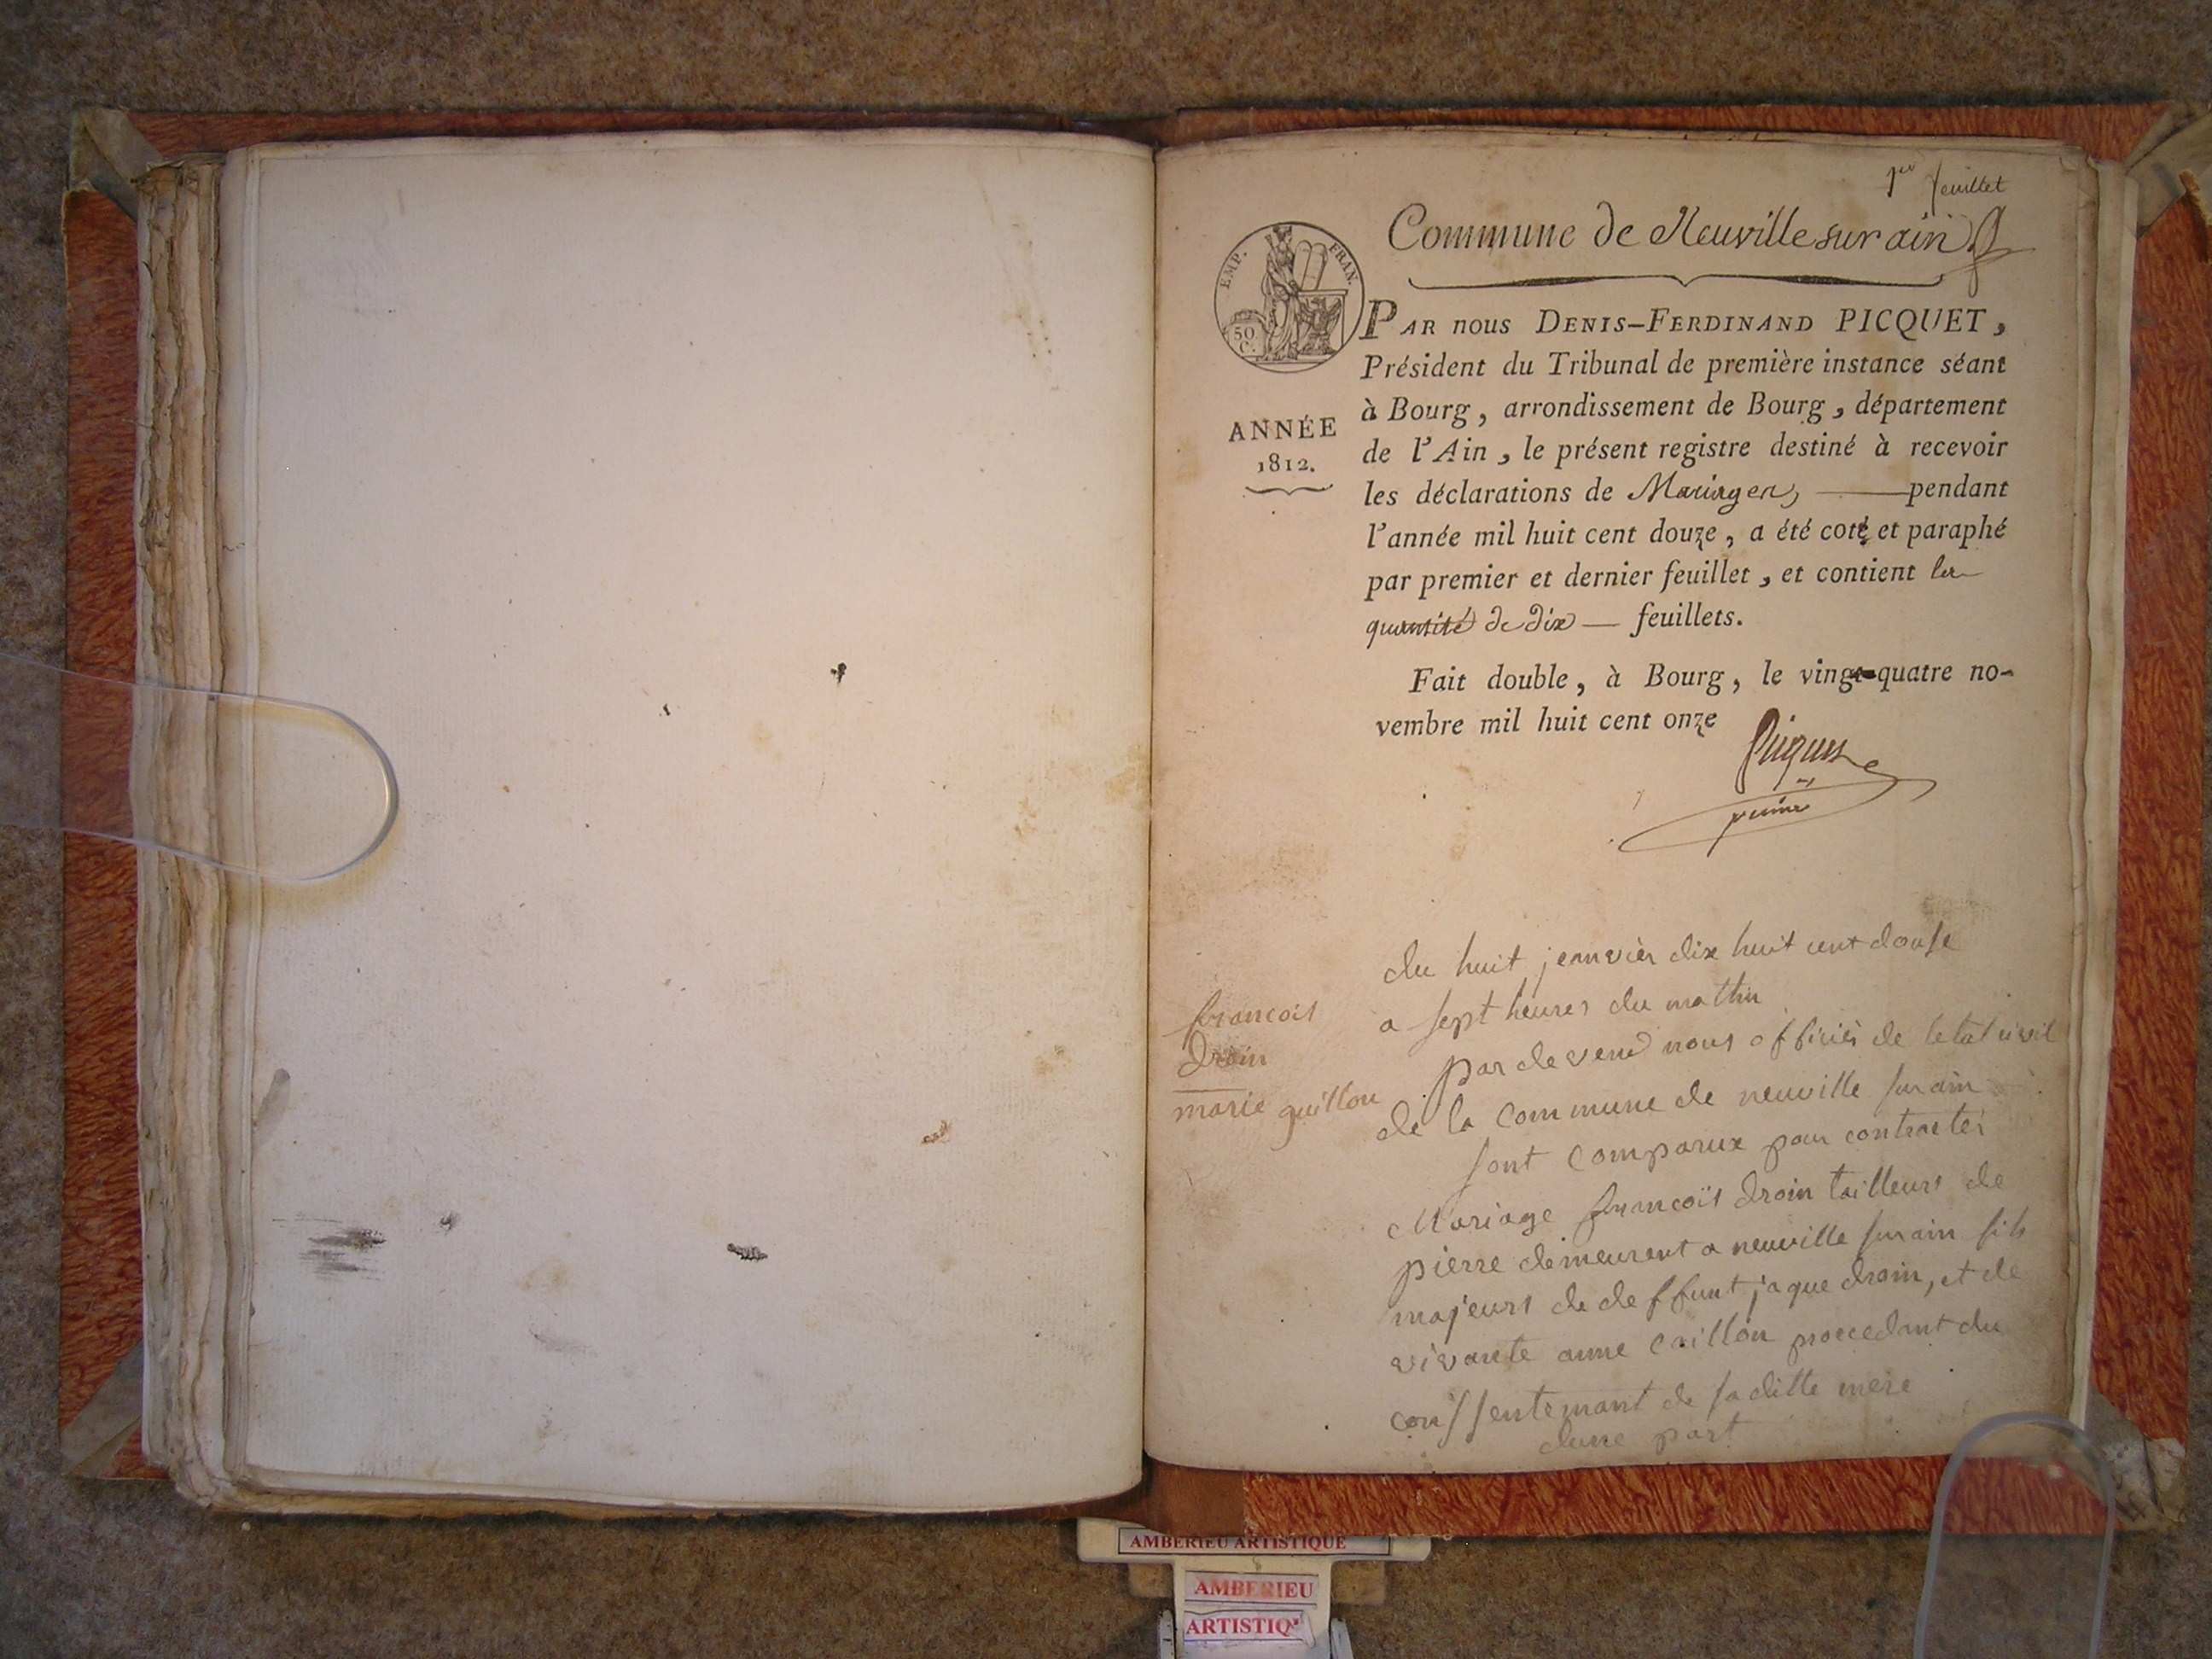 1er feuillet
Commune de Neuville sur ain
EMP. FRAN.
50
C.
PAR nous DENIS-FERDINAND PICQUET,
Président du Tribunal de première instance séant
à Bourg, arrondissement de Bourg, département
de l'Ain, le présent registre destiné à recevoir
les déclarations de Mariages, — pendant
l'année mil huit cent douze, a été coté et paraphé
par premier et dernier feuillet, et contient la
quantité de dix — feuillets.
ANNÉE
1812.
Fait double, à Bourg, le vingt-quatre no-
vembre mil huit cent onze
Picquet
du huit jeanvier dix huit cent douse
a sept heures du mathin
par devend nous officier de letat civil
de la commune de neuville sur ain
sont comparux pour contracter
Mariage francois droin tailleurs de
pierre demeurent a neuville sur ain fils
majeurs de deffunt jaque droin, et de
vivante anne caillon procedant du
conssentemant de sa ditte mere
dune part
francois
droin
marie guillon
AMBERIEU ARTISTIQUE
AMBERIEU
ARTISTIQ